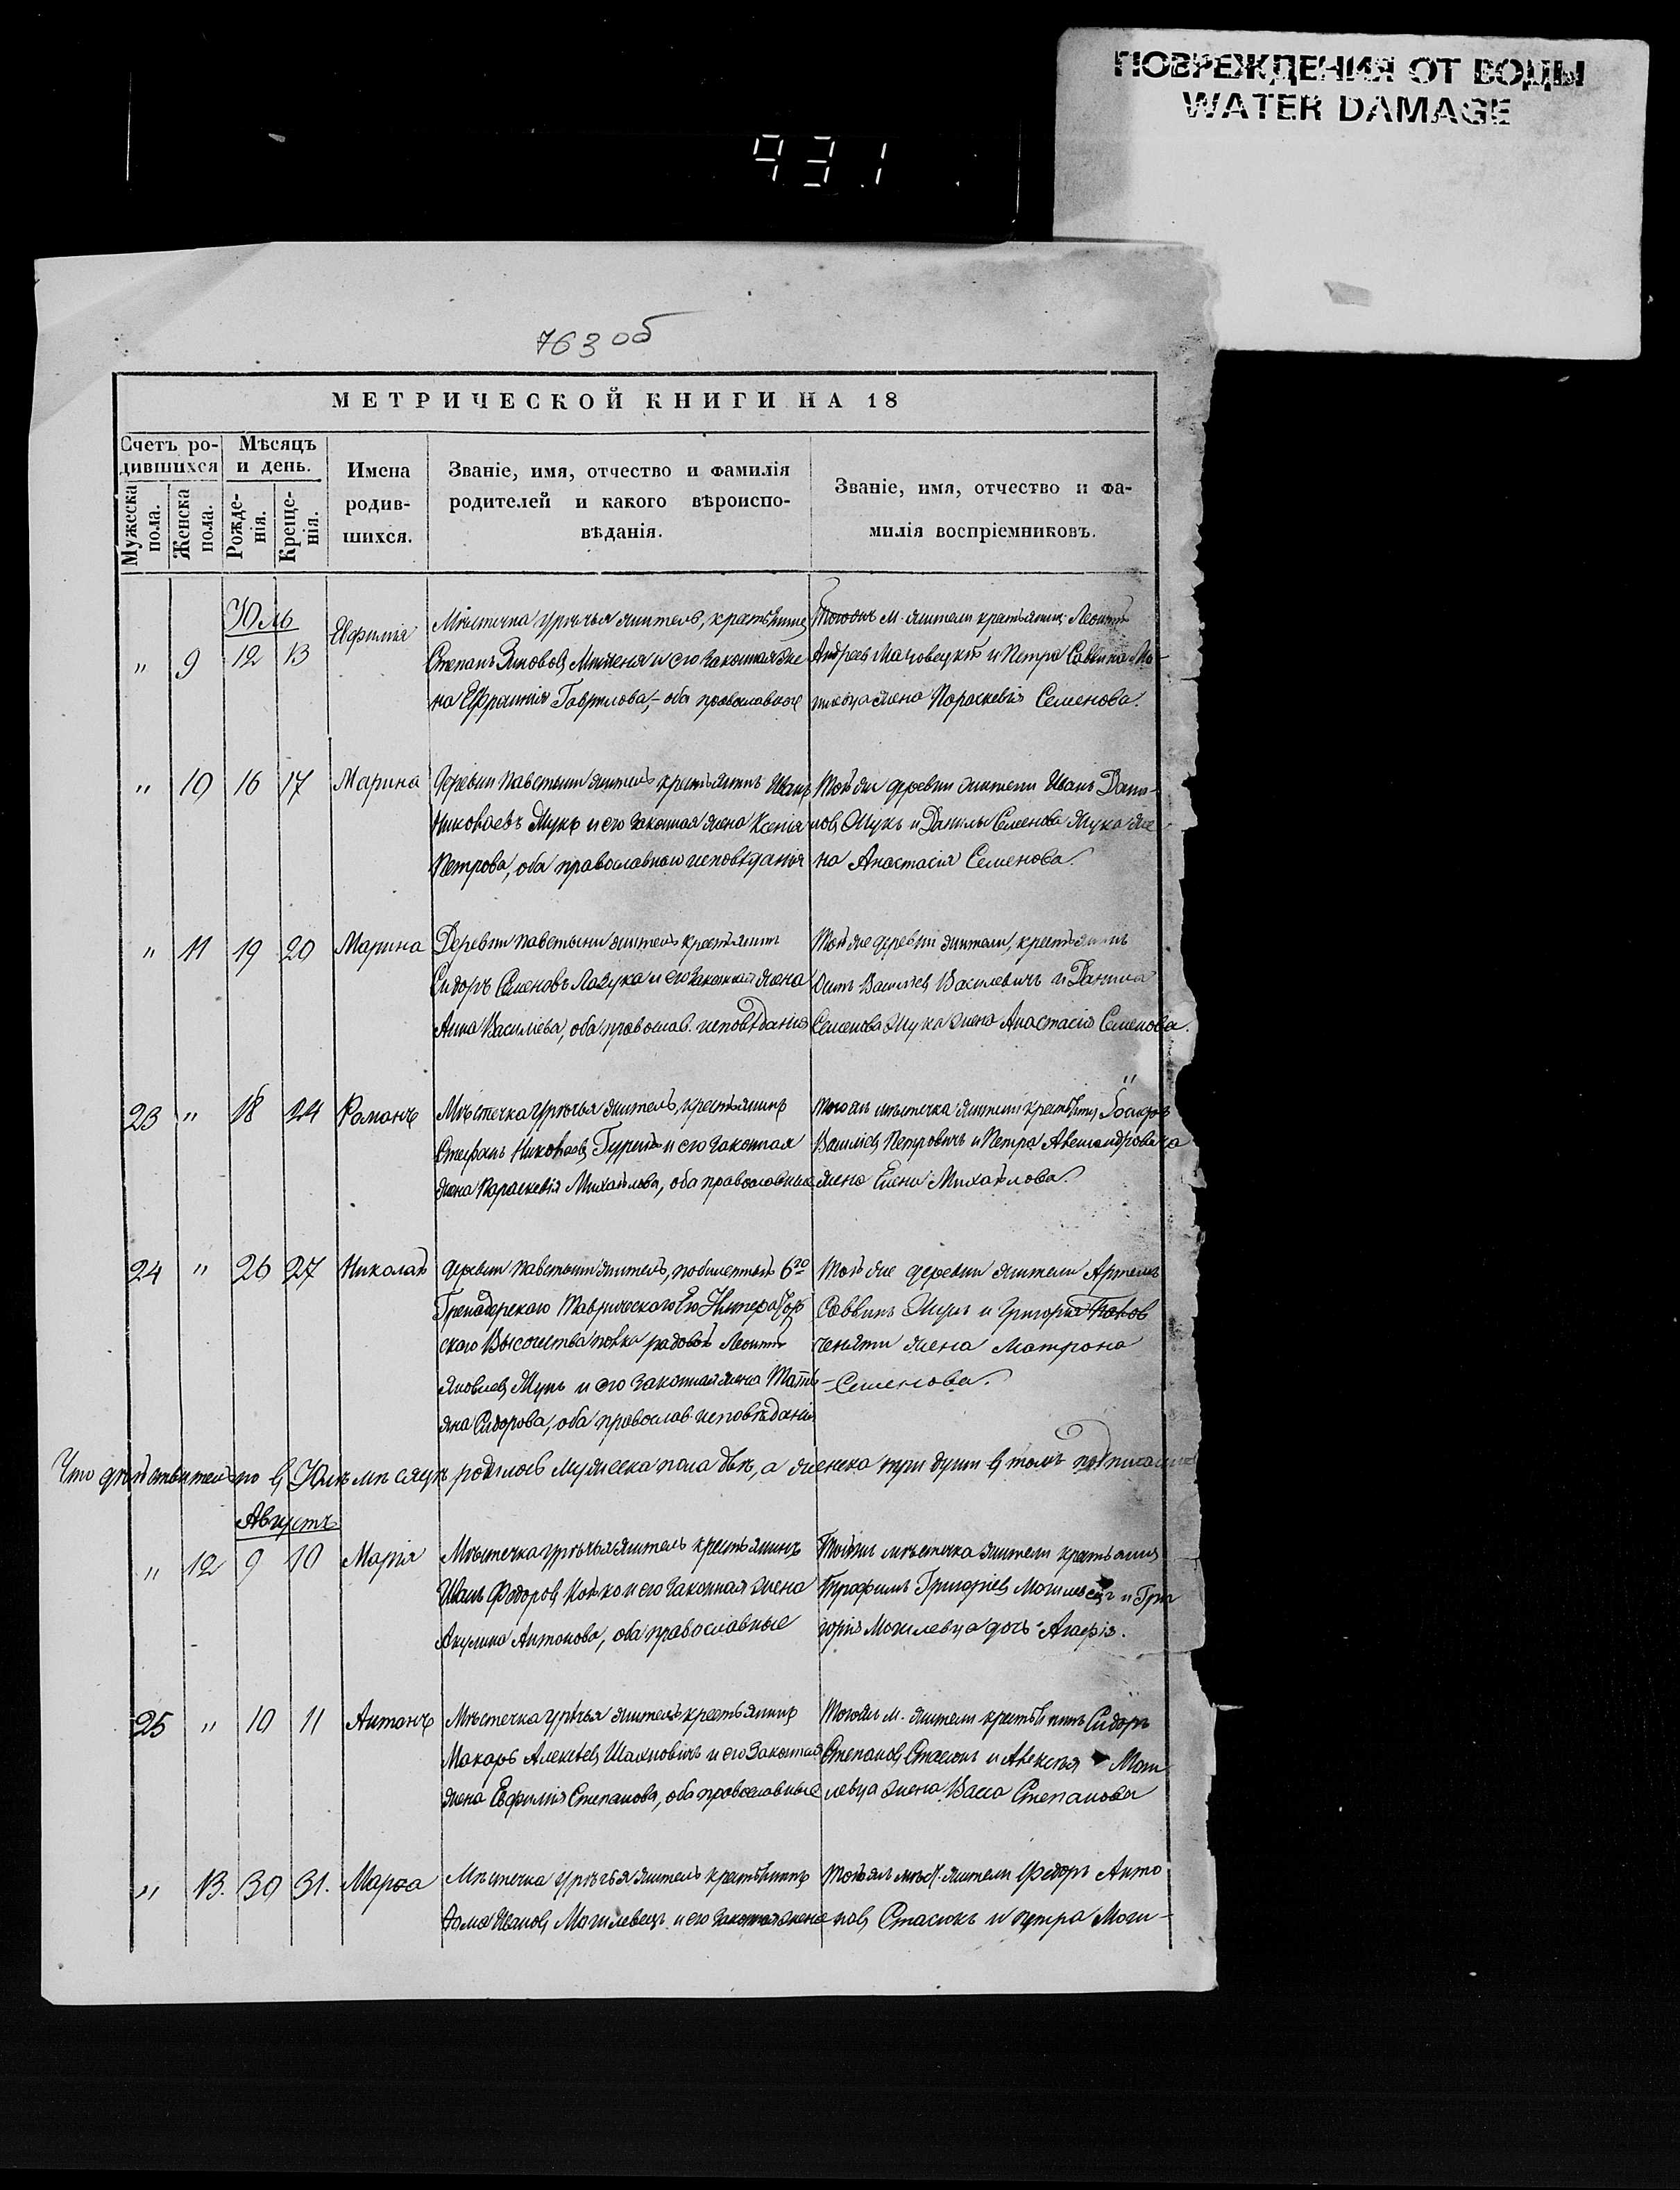 ПОВРЕЖДЕНИЯ ОТ ВОДЫ
WATER DAMAGE
931
763 об
МЕТРИЧЕСКОЙ КНИГИ НА 18
Счетъ родившихся
Мужеска пола.
Женска пола.
Мѣсяцъ и день.
Рожденія.
Крещенія.
Имена родившихся.
Званіе, имя, отчество и фамилія
родителей и какого вѣроиспо-
вѣданія.
Званіе, имя, отчество и фа-
милія воспріемниковъ.
Юль
" 9 12 13 Евфимія
Мѣстечка Урѣчья житель, крестьянинъ
Степанъ его законная же-
на Гаврилова, оба православные
М. жители крестьянинъ Леонтій
Андреевъ и Петра Саввина
жена Параскевія Семенова.
" 10 16 17 Марина
Деревни Павстыни житель крестьянинъ Иванъ
Николаевъ Жукъ и его законная жена Ксенія
Петрова, оба православнаго исповѣданія
Той же деревни жители Иванъ Дани-
ловъ Жукъ и Данилы Семенова Жука же-
на Анастасія Семенова.
" 11 19 20 Марина
Деревни Павстыни житель крестьянинъ
Сидоръ Семеновъ Лазука и его законная жена
Анна Василіева, оба православ. исповѣданія
Той же деревни жители, крестьянинъ
Василіевъ Василевичъ и Данила
Семенова Жука жена Анастасія Семенова.
23 " 18 24 Романъ
Мѣстечка Урѣчья житель, крестьянинъ
Стефанъ Николаевъ и его законная
жена Параскевія Михайлова, оба православные
Того же мѣстечка жители крестьянинъ
Василіевъ Петровичъ и Петра
жена Елена Михайлова.
24 " 26 27 Николай
Деревни Павстыни житель, побилетный 6го
Гренадерскаго Таврическаго Его Император-
скаго Высочества полка рядовой Леонтій
Яковлевъ Жукъ и его законная жена Татья-
яна Сидорова, оба православ. исповѣданія
Той же деревни жители Артемъ
Саввинъ Жукъ и Григорія
жена Матрона
Семенова.
Что дѣйствительно въ Юлѣ мѣсяцѣ родилось мужеска пола двѣ, а женска три души въ томъ
Августъ
" 12 9 10 Марія
Мѣстечка Урѣчья житель крестьянинъ
Иванъ Федоровъ и его законная жена
Акулина Антонова, оба православные
мѣстечка жители крестьянинъ
Трофимъ Григоріевъ Могилевецъ и Гри-
горія Могилевца дочь Агафія.
25 " 10 11 Антонъ
Мѣстечка Урѣчья житель крестьянинъ
Макаръ Алексѣевъ Шахновичъ и его законная
жена Евфимія Степанова, оба православные
Того же м. жители крестьянинъ Сидоръ
Степановъ Стасюкъ и Алексѣя Моги-
левца жена Васса Степанова
" 13. 30 31. Марѳа
Мѣстечка Урѣчья житель крестьянинъ
Ѳома Ивановъ Могилевецъ и его законная жена
жители Федоръ Анто-
новъ Стасюкъ и Петра Моги-